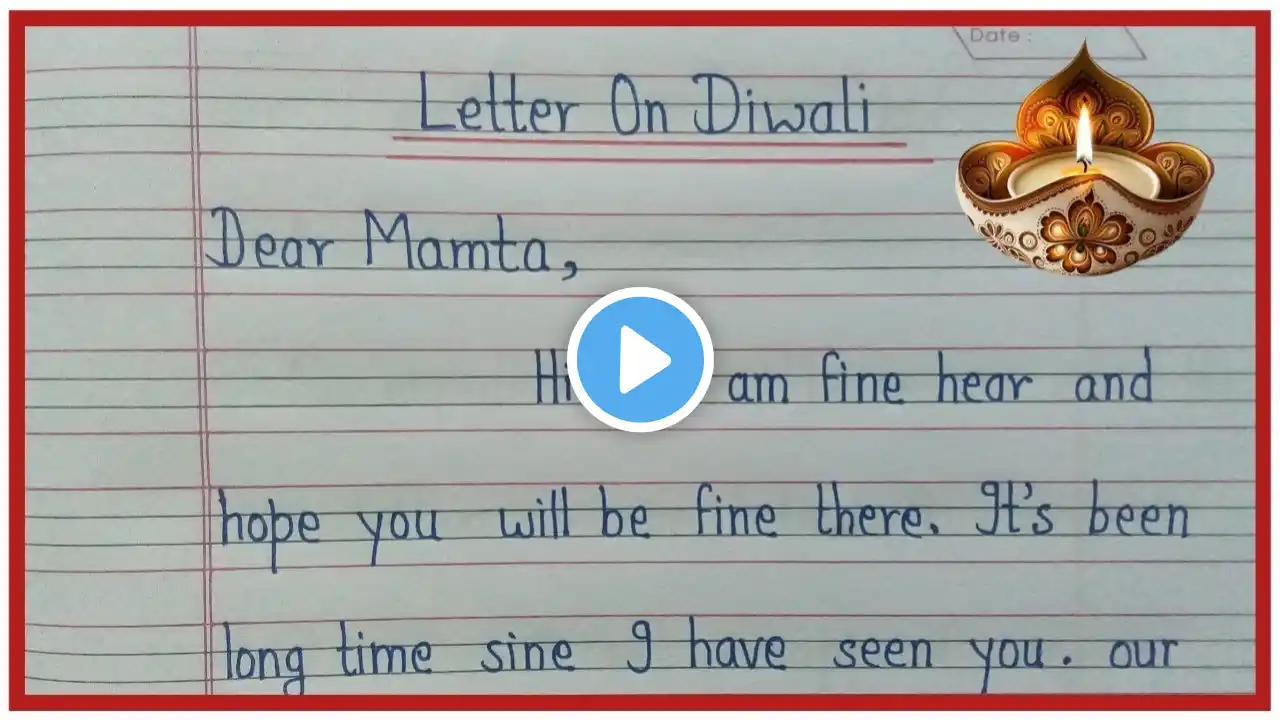 Date :
Letter On Diwali
Dear Mamta,
Hi am fine hear and
hope you will be fine there. It's been
long time sine I have seen you. our